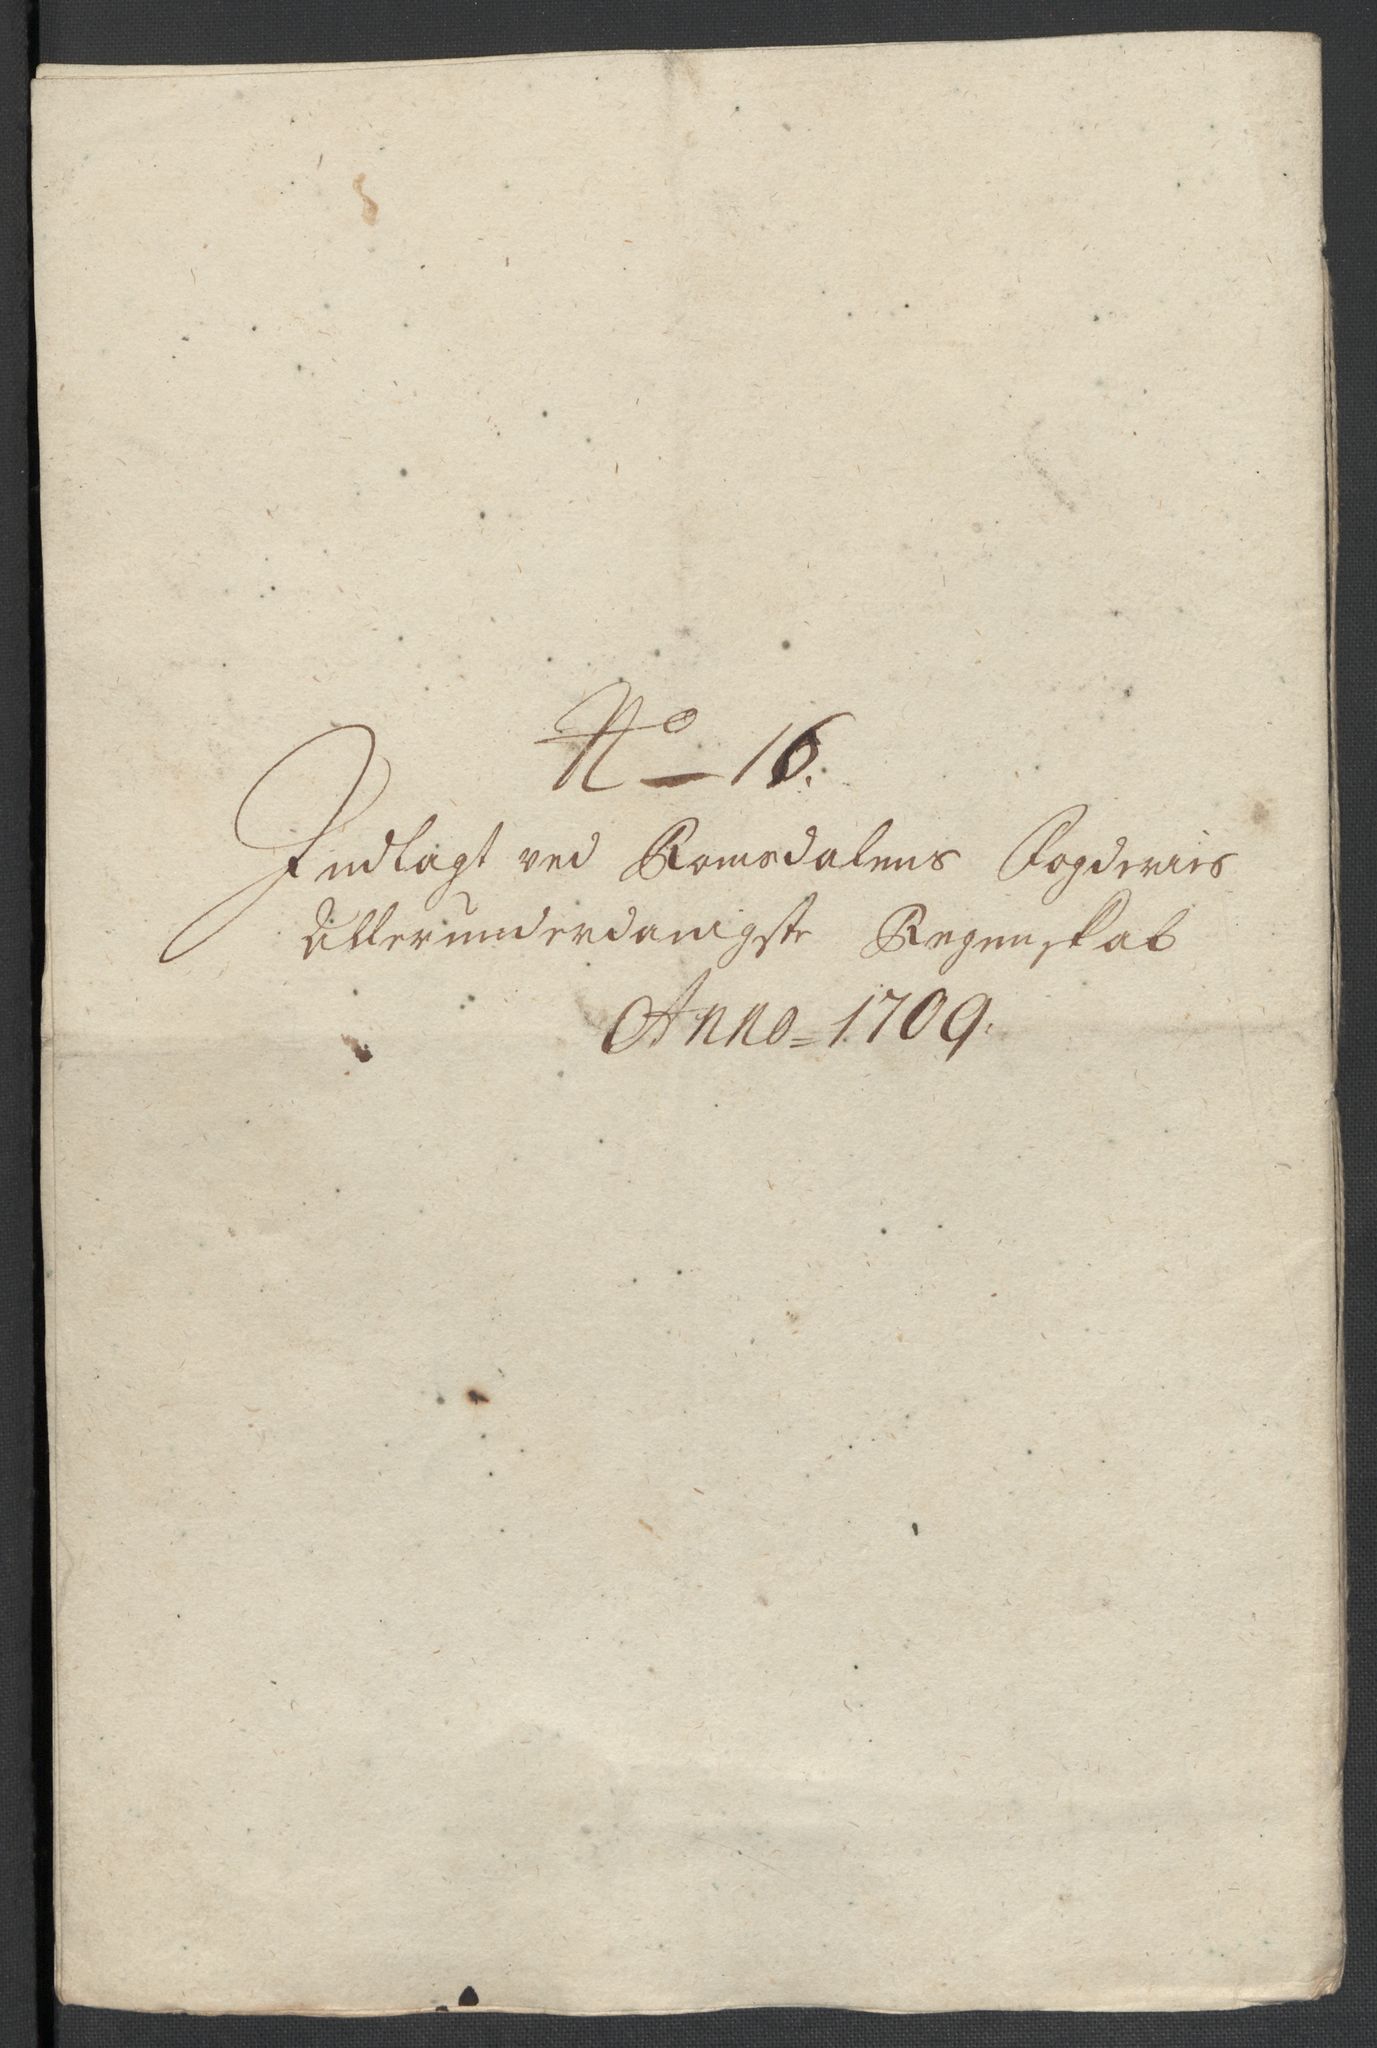 No 16.
Indlagt ved Romsdalens Fogderies
Allerunderdanigste Regenskab
Anno 1709.